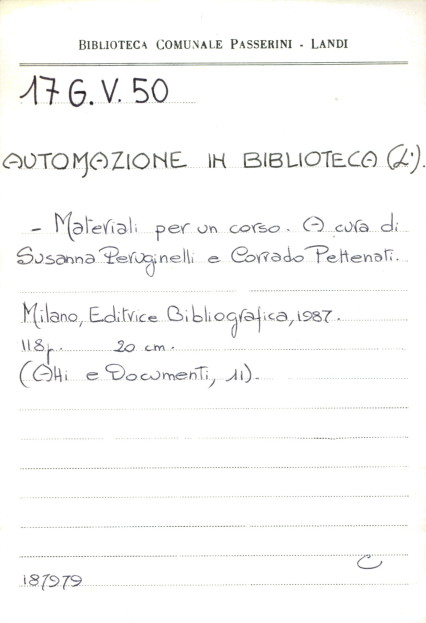 BIBLIOTECA COMUNALE PASSERINI - LANDI
17 G.V. 50
AUTOMAZIONE IN BIBLIOTECA (L').
- Materiali per un corso. A cura di
Susanna Peruginelli e Corrado Pettenati.
Milano, Editrice Bibliografica, 1987.
118p. 20 cm.
(Atti e Documenti, 11).
C
187979